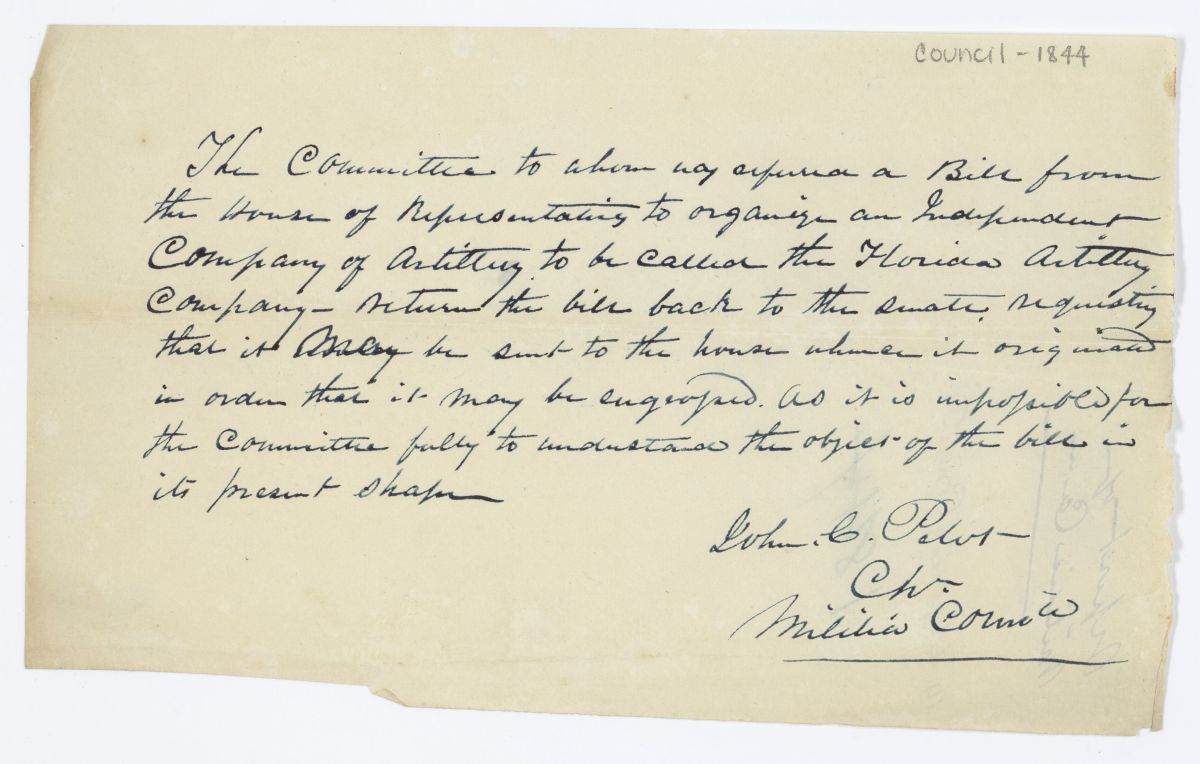 Council - 1844
The Committee to whom was refered a Bill from
the House of Representatives to organize an Independent
Company of Artillery to be called the Florida Artillery
Company - return the bill back to the senate, requesting
that it may be sent to the house whence it originated
in order that it may be engrossed. As it is impossible for
the Committee fully to understand the object of the bill in
its present shape
John. C. Pelot
Chn.
Militia Comte